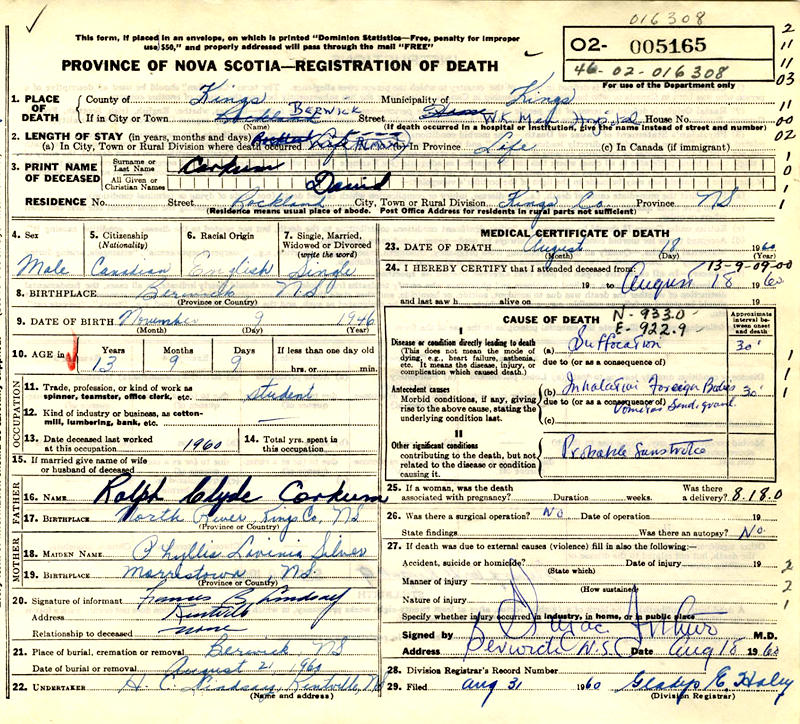 016308
This form, if placed in an envelope, on which is printed "Dominion Statistics—Free, penalty for improper
use $50," and properly addressed will pass through the mail "FREE"
O2- 005165
46-02-016308
For use of the Department only
2
11
11
03
PROVINCE OF NOVA SCOTIA—REGISTRATION OF DEATH
1. PLACE OF DEATH
County of Kings Municipality of Kings
If in City or Town Rockland BERWICK Street W.K. Mem Hospital House No.
(Name) (If death occurred in a hospital or institution, give the name instead of street and number)
11
00
02
2. LENGTH OF STAY (in years, months and days)
(a) In City, Town or Rural Division where death occurred Life (b) In Province Life (c) In Canada (if immigrant)
3. PRINT NAME OF DECEASED
Surname or Last Name Corkum
All Given or Christian Names David
1
0
1
1
RESIDENCE No. Street Rockland City, Town or Rural Division Kings Co Province NS
(Residence means usual place of abode. Post Office Address for residents in rural parts not sufficient)
4. Sex
Male
5. Citizenship
(Nationality)
Canadian
6. Racial Origin
English
7. Single, Married, Widowed or Divorced
(write the word)
Single
8. BIRTHPLACE Berwick NS
(Province or Country)
9. DATE OF BIRTH November 9 1946
(Month) (Day) (Year)
10. AGE in Years Months Days If less than one day old
13 9 9 hrs. or min.
OCCUPATION
11. Trade, profession, or kind of work as
spinner, teamster, office clerk, etc. student
12. Kind of industry or business, as cotton-
mill, lumbering, bank, etc. —
13. Date deceased last worked
at this occupation 1960
14. Total yrs. spent in
this occupation
15. If married give name of wife
or husband of deceased
FATHER
16. NAME Ralph Clyde Corkum
17. BIRTHPLACE North River, Kings Co, NS
(Province or Country)
MOTHER
18. MAIDEN NAME Phyllis Lavinia Silver
19. BIRTHPLACE Morristown NS.
(Province or Country)
20. Signature of informant Francis B. Lindsay
Address Kentville
Relationship to deceased none
21. Place of burial, cremation or removal Berwick, NS
Date of burial or removal August 21 1960
22. UNDERTAKER H. C. Lindsay, Kentville, NS
(Name and address)
MEDICAL CERTIFICATE OF DEATH
23. DATE OF DEATH August 18 1960
(Month) (Day) (Year)
24. I HEREBY CERTIFY that I attended deceased from:
13-9-09-00
19 to August 18 1960
and last saw h alive on 19
CAUSE OF DEATH N-933.0
E-922.9
Approximate interval between onset and death
I
Disease or condition directly leading to death
(This does not mean the mode of
dying, e.g., heart failure, asthenia,
etc. It means the disease, injury, or
complication which caused death.)
(a) Suffocation 30'
due to (or as a consequence of)
Antecedent causes
Morbid conditions, if any, giving
rise to the above cause, stating the
underlying condition last.
(b) Inhalation Foreign Bodies 30'
due to (or as a consequence of)
(c)
II
Other significant conditions
contributing to the death, but not
related to the disease or condition
causing it.
Probable Sunstroke
1
1
1
25. If a woman, was the death
associated with pregnancy? Duration weeks. Was there
a delivery? 8.18.0
26. Was there a surgical operation? No Date of operation 19
State findings Was there an autopsy? No
27. If death was due to external causes (violence) fill in also the following:—
Accident, suicide or homicide? Date of injury 19
(State which)
Manner of injury
(How sustained)
Nature of injury
Specify whether injury occurred in industry, in home, or in public place
2
2
1
Signed by M.D.
Address Berwick N.S. Date Aug 18 1960
28. Division Registrar's Record Number
29. Filed Aug 31 1960 Gladys E. Haley
(Division Registrar)